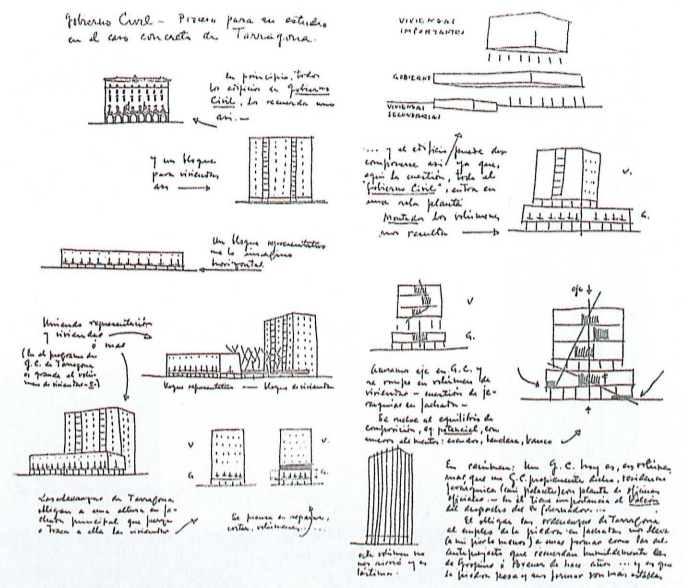 Gobierno Civil – Proceso para su estudio
en el caso concreto de Tarragona.
en principio, todos
los edificios en Gobierno
Civil, los recuerda uno
así. —
y un bloque
para viviendas
así
Un bloque representativo
me lo imagino
horizontal
Uniendo representación
y viviendas
ó más
(En el programa de
G.C. de Tarragona
es grande el volu
men de viviendas
bloque representativo — bloque de viviendas
Las ordenanzas de Tarragona
obligan a una altura en fa
chada principal que
o traen a ella las viviendas
V.
G.
V.
G.
Se piensa en separar,
cortar, volúmenes
VIVIENDAS
IMPORTANTES
GOBIERNO
VIVIENDAS
SECUNDARIAS
.... y el edificio puede des
componerse así ya que,
aquí la cuestión, todo el
"Gobierno Civil", entra en
una sola planta
Montados los volúmenes
nos resulta
V.
G.
V
G.
eje
Aunamos eje en G.C. y
se rompe en volúmen de
viviendas – cuestión de je-
rarquías en fachadas –
Se vuelve al equilibrio de
composición, eq potencial, con
nuevos elementos: escudos, bandera, banco
este volúmen no
nos sirvió y es
lástima.
En resúmen: Un G.C. hoy es, en volúmen
más que un G.C. propiamente dicho, residencia
jerárquica (casi palacio) con planta de oficinas
oficiales – en él tiene importancia el balcón
del despacho del Gobernador. ...
El obligar las ordenanzas de Tarragona
al empleo de la piedra en fachadas, nos lleva
(a mí por lo menos) a unas formas como las del
anteproyecto que recuerdan humildemente las
de Gropius ó Breuer de hace años ... y es que
la piedra pesa y sus formas son más estables